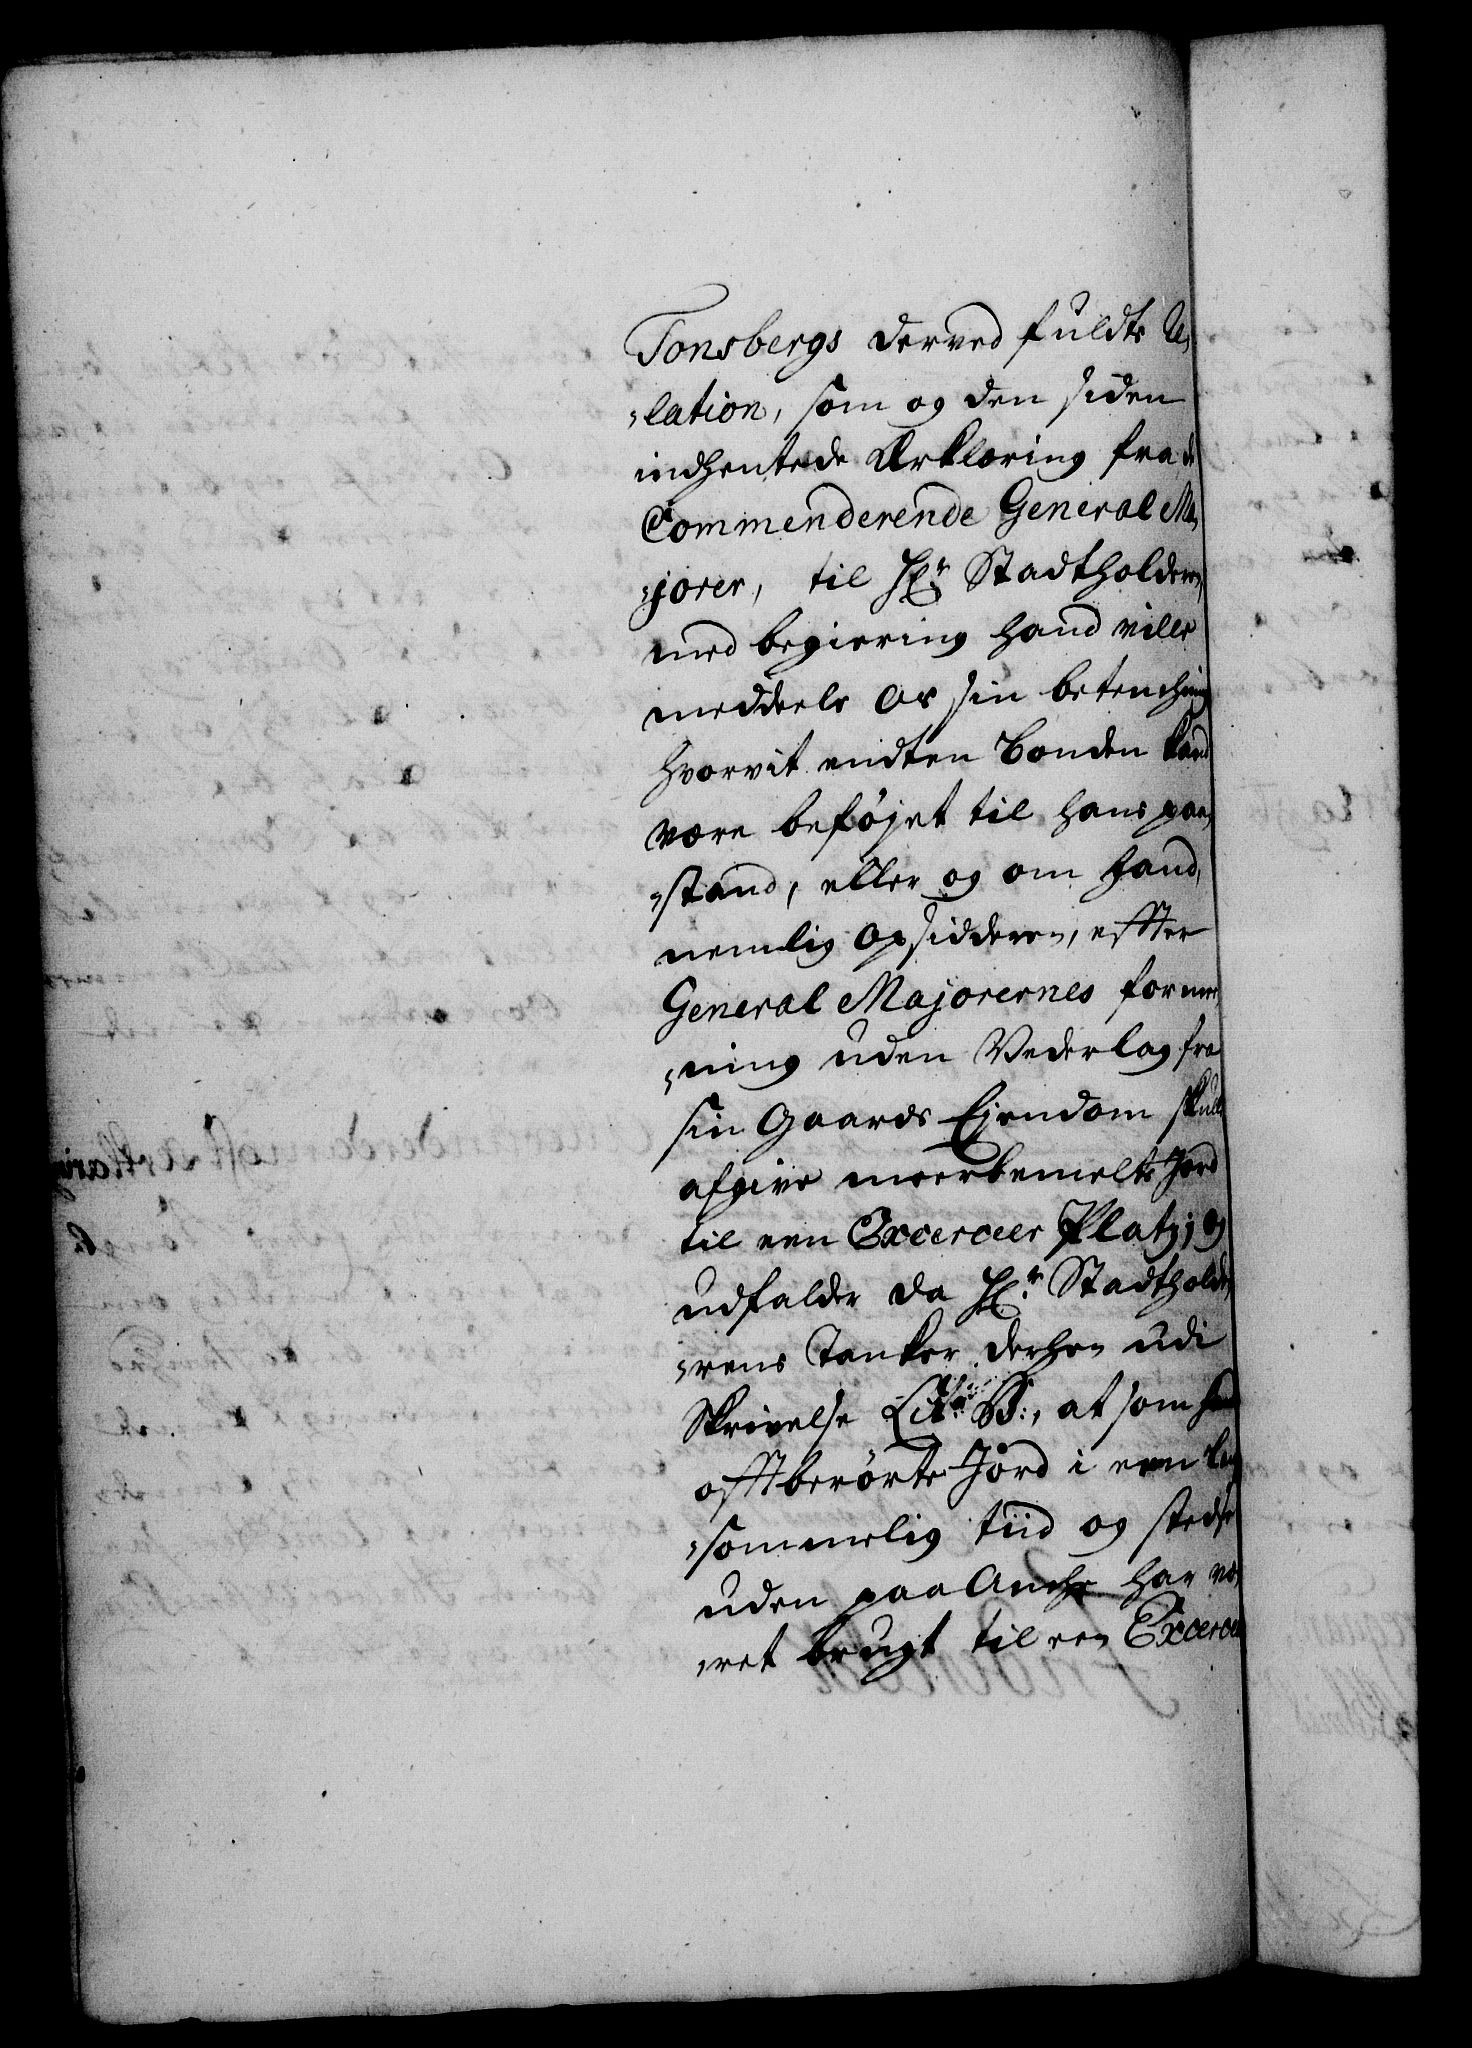 Tonsbergs derved fuldte Re,
„lation, som og den siden
indhentede Erklæring fra de
Commenderende General Ma,
„jorer, til Hr: Stadtholderen,
med begiering hand ville
meddeele os sin betenchning
hvorvit endten Bonden kand
være beføjet til hans paa,
„stand, eller og om hand,
nemlig Opsidderen, effter
General Majorernes formee,
„ning uden Vederlag fra
sin Gaards Ejendom skulle
afgive meerbemelte Jord
til een Excerceer Platz; Og
udfalder da Hr: Stadtholde,
„rens Tanker derhen udi
Skrivelse Litr: B:, at som hand
offtberørte Jord i een lang,
„sommelig tiid og stedse
uden paa Ancke har væ,
„ret brugt til een Excerceer